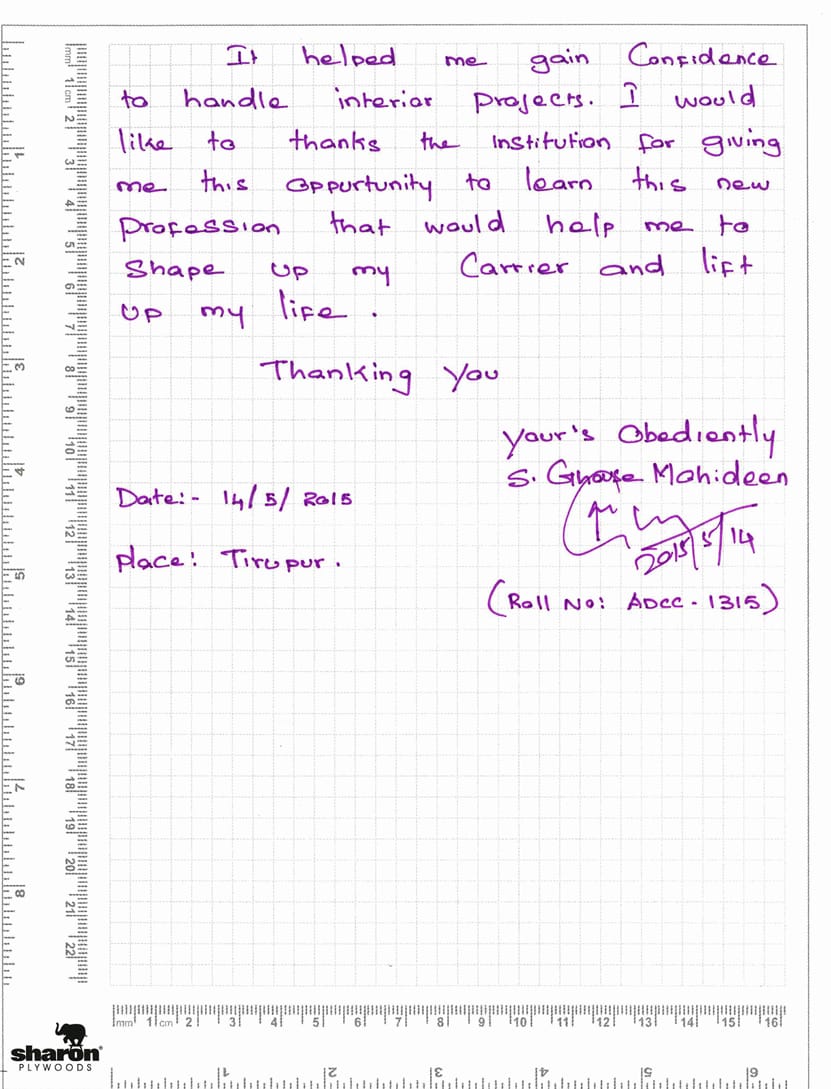 It helped me gain Confidence
to handle interior projects. I would
like to thanks the institution for giving
me this oppurtunity to learn this new
profession that would help me to
Shape up my Carrier and lift
up my life .
Thanking You
Your's Obediently
S. Ghouse Mohideen
Date:- 14/5/2015
2015/5/14
Place: Tirupur .
(Roll No: ADCC - 1315)
mm 1 cm 2 3 4 5 6 7 8 9 10 11 12 13 14 15 16 17 18 19 20 21 22
1 2 3 4 5 6 7 8
mm 1 cm 2 3 4 5 6 7 8 9 10 11 12 13 14 15 16
1 2 3 4 5 6
sharon®
PLYWOODS